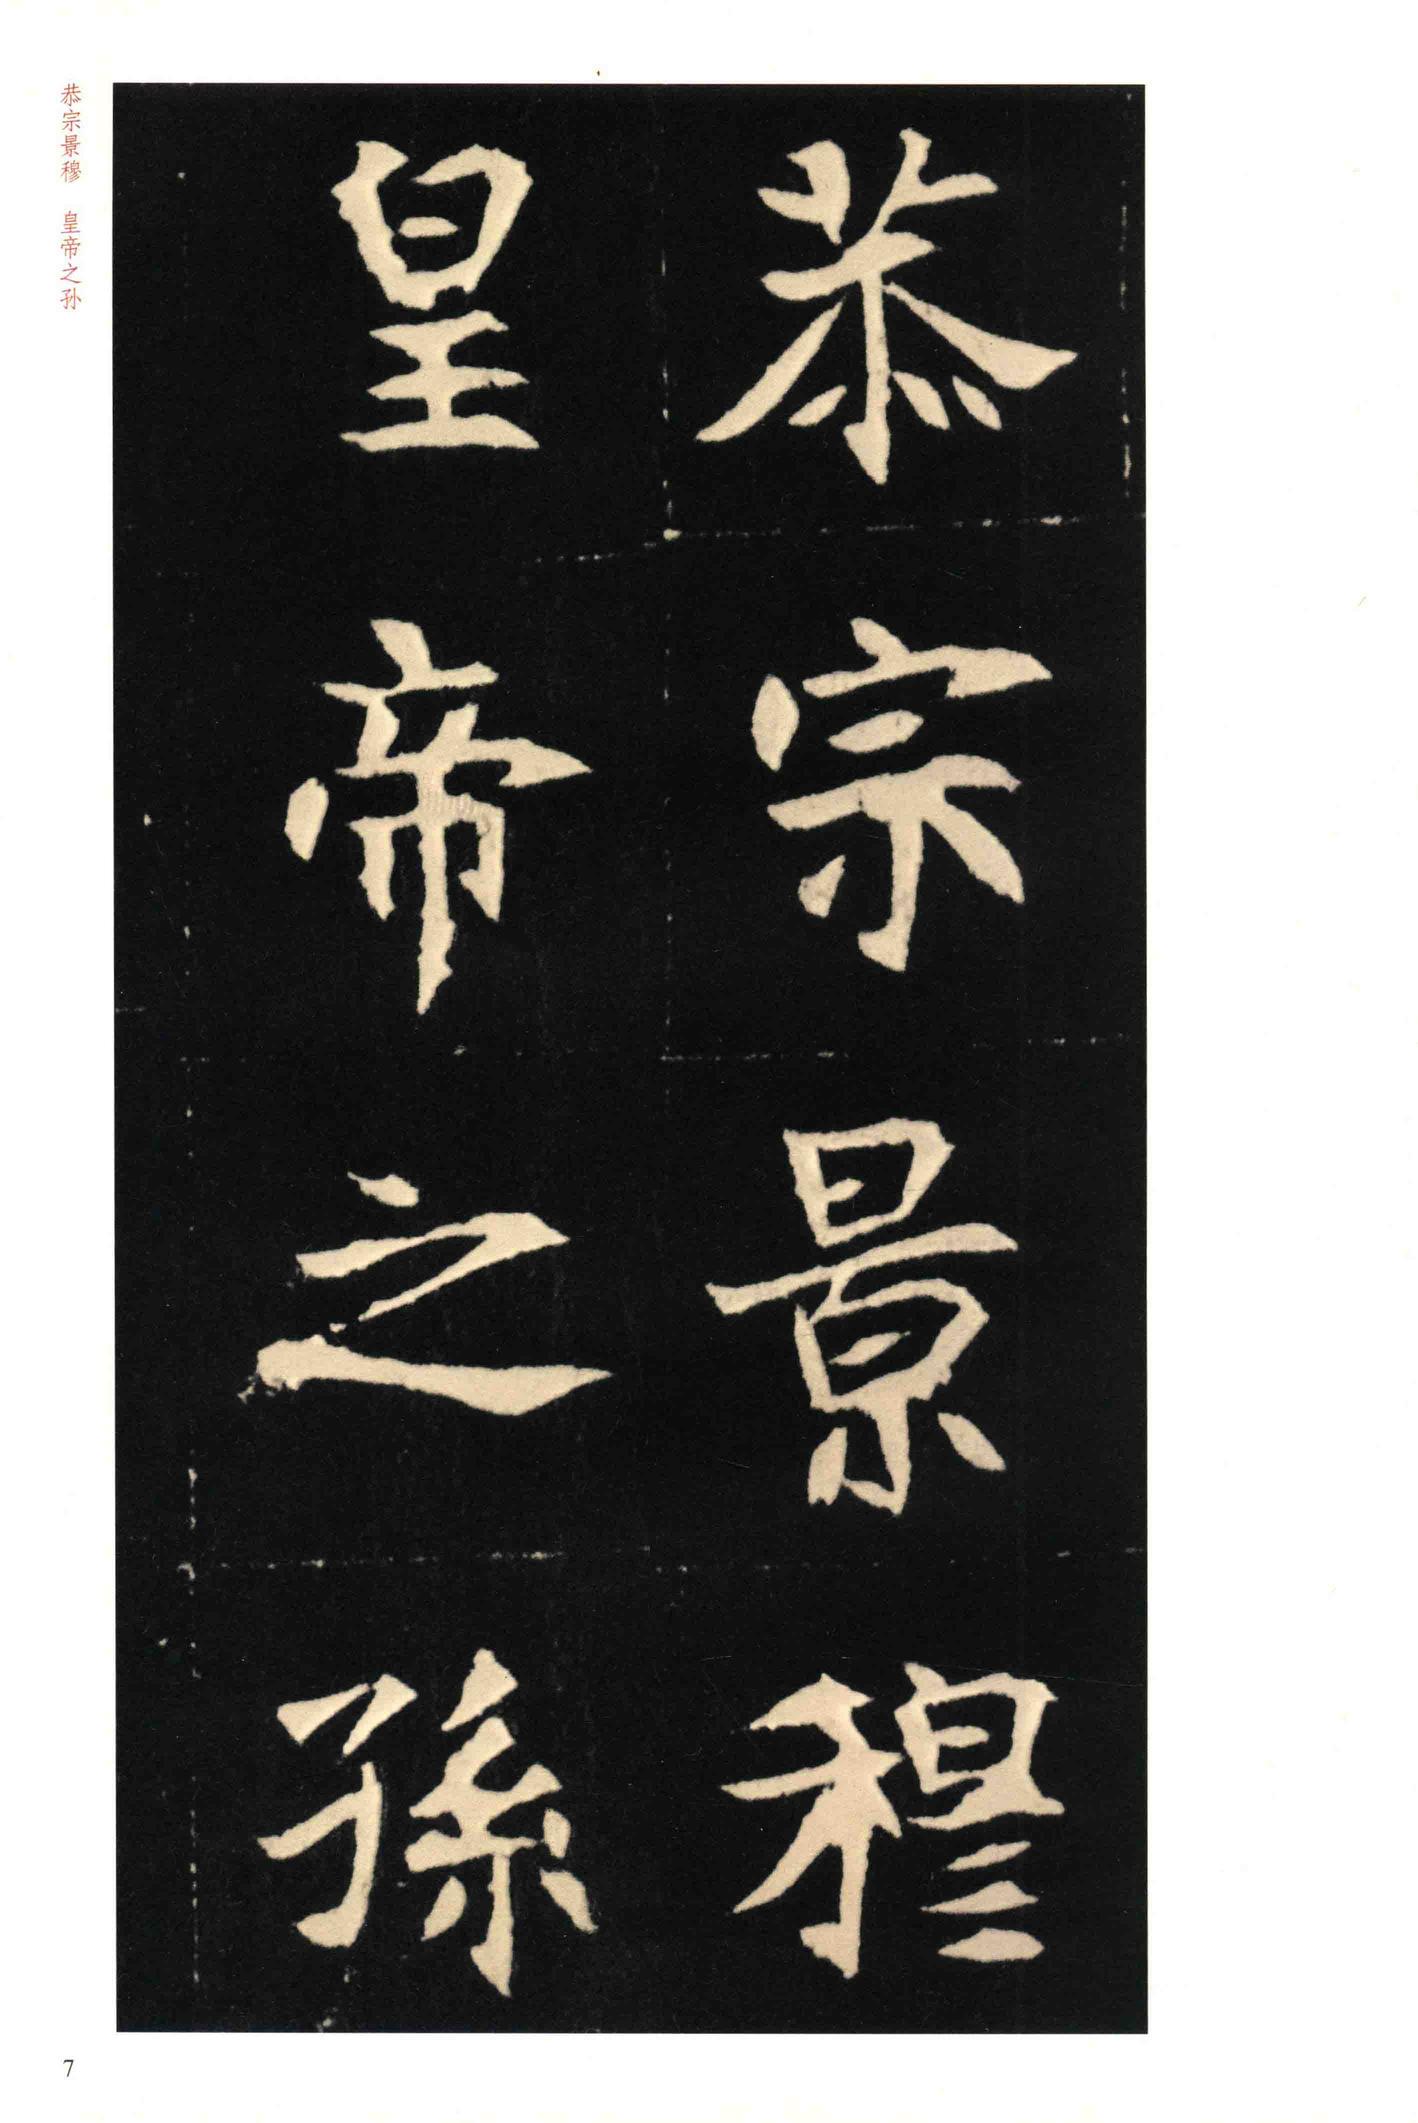 恭宗景穆
皇帝之孫
恭宗景穆　皇帝之孙
7